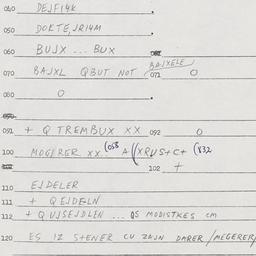 040 DEJFI4K .
050 DOKTE,JRI4M
060 BUJX ... BUX
070 BAJXL QBUT NOT BAJXELE 071 O
080 O .
091 + Q TREMBUX XX 092 O
100 MOGERER XX. (058 A ((XRUS+C+ (832
102 +
110 EJDELER
111 + QEJDELN
112 + QUJSEJDLEN ... QS MODISTKES CM
120 ES IZ STENER CU ZAJN DARER /MEGERER/